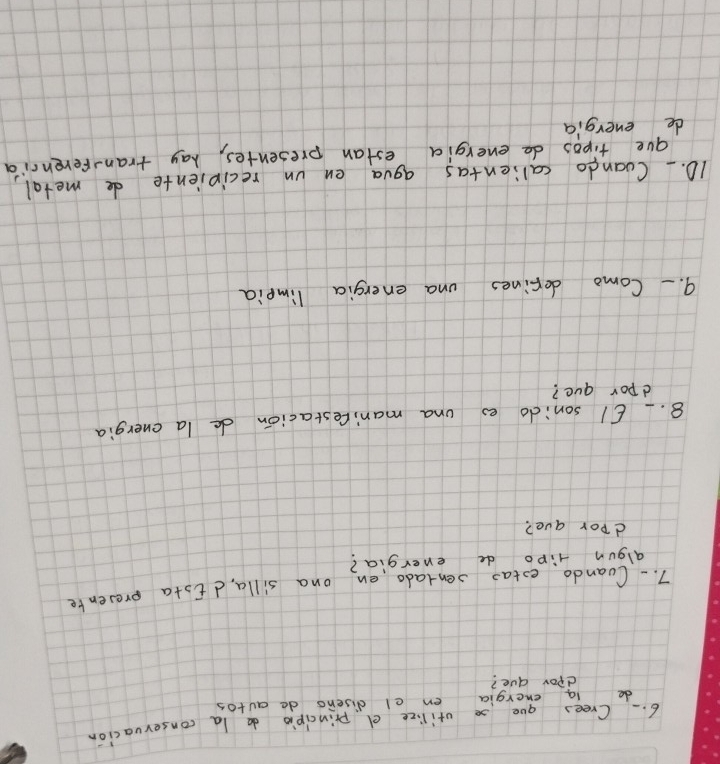 6.- Crees que se utilize el principio de la conservación
de la energia en el diseño de autos
¿por que?
7.- Cuando estas sentado en una silla, ¿Esta presente
algun tipo de energia?
¿Por que?
8.- El sonido es una manifestación de la energia
¿por que?
9.- Como defines una energia limpia
10.- Cuando calientas agua en un recipiente de metal,
que tipos de energia estan presentes, hay transferencia
de energia